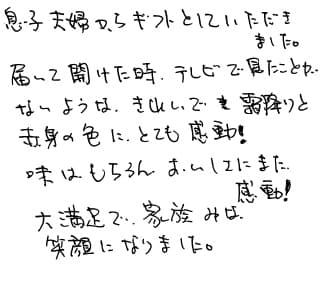 息子夫婦からギフトとしていただき
ました。
届いて開けた時、テレビで見たことが
ないような、きれいで霜降りと
赤身の色に、とても感動!
味はもちろんおいしさにまた
感動!
大満足で、家族みな
笑顔になりました。